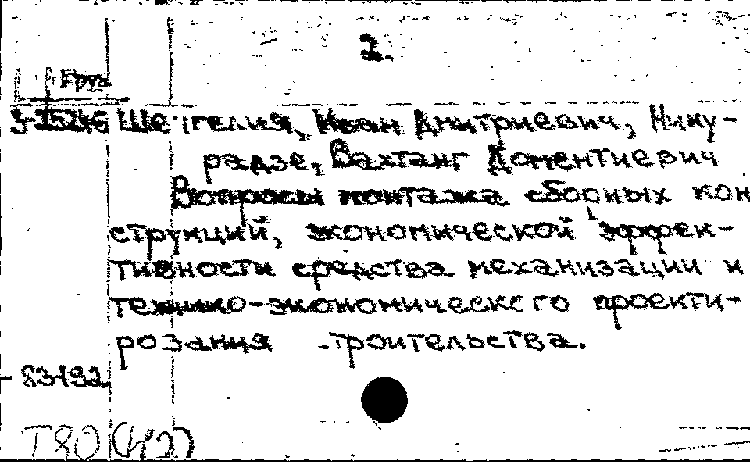 2.
Груз
Шенгелия, Иван Дмитриевич, Нику-
радзе, Вахтанг Доментиевич
Вопросы монтажа сборных кон
струкций, экономической эффек-
тивности средства механизации и
технико-экономического проекти-
рования строительства.
83492
Т80(42)